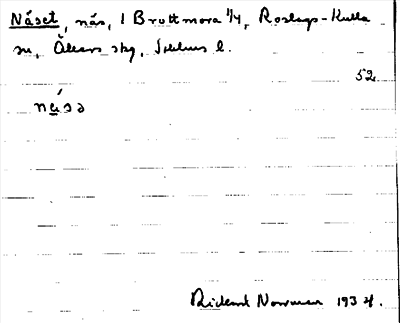 Näset, näs, 1 Brottmora 1/4, Roslags-Kulla
sn, Åkers skg, Sthlms l.
52
näsə
Rident Norrman 1934.